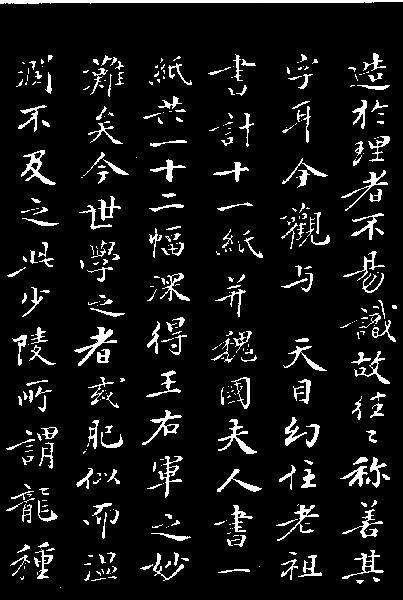 造於理者不易識故往〻称善其
字耳今觀与 天目幻住老祖
書計十一紙并魏國夫人書一
紙共一十二幅深得王右軍之妙
難矣今世學之者或肥似而温
潤不及之此少陵所謂龍種